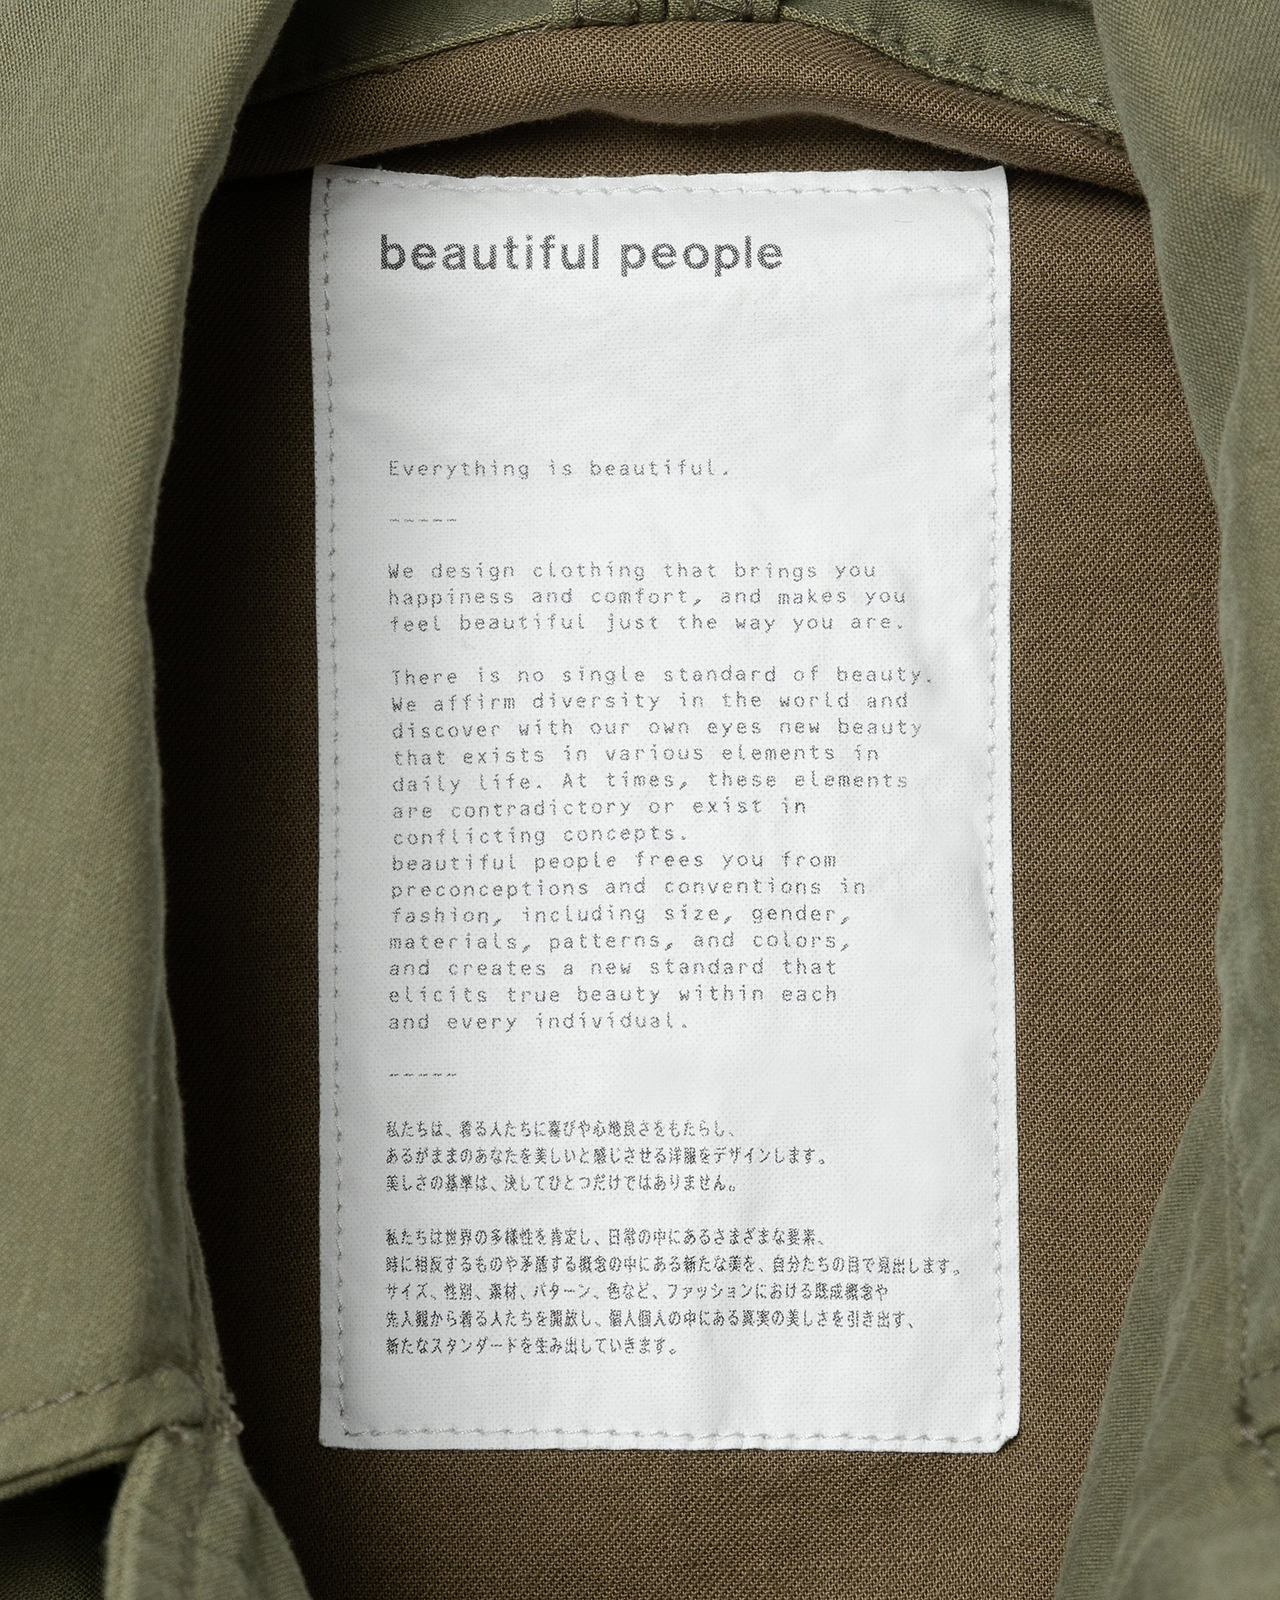 beautiful people
Everything is beautiful.
-----
We design clothing that brings you
happiness and comfort, and makes you
feel beautiful just the way you are.
There is no single standard of beauty.
We affirm diversity in the world and
discover with our own eyes new beauty
that exists in various elements in
daily life. At times, these elements
are contradictory or exist in
conflicting concepts.
beautiful people frees you from
preconceptions and conventions in
fashion, including size, gender,
materials, patterns, and colors,
and creates a new standard that
elicits true beauty within each
and every individual.
-----
私たちは、着る人たちに喜びや心地良さをもたらし、
あるがままのあなたを美しいと感じさせる洋服をデザインします。
美しさの基準は、決してひとつだけではありません。
私たちは世界の多様性を肯定し、日常の中にあるさまざまな要素、
時に相反するものや矛盾する概念の中にある新たな美を、自分たちの目で見出します。
サイズ、性別、素材、パターン、色など、ファッションにおける既成概念や
先入観から着る人たちを開放し、個人個人の中にある真実の美しさを引き出す、
新たなスタンダードを生み出していきます。